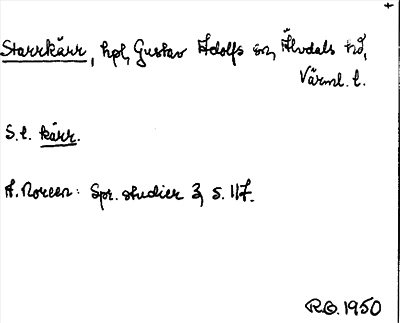 Starrkärr, hpl, Gustav Adolfs sn, Älvdals hd,
Värml. l.
S.l. kärr.
A. Noreen: Spr. studier 3, s. 117.
R.G. 1950